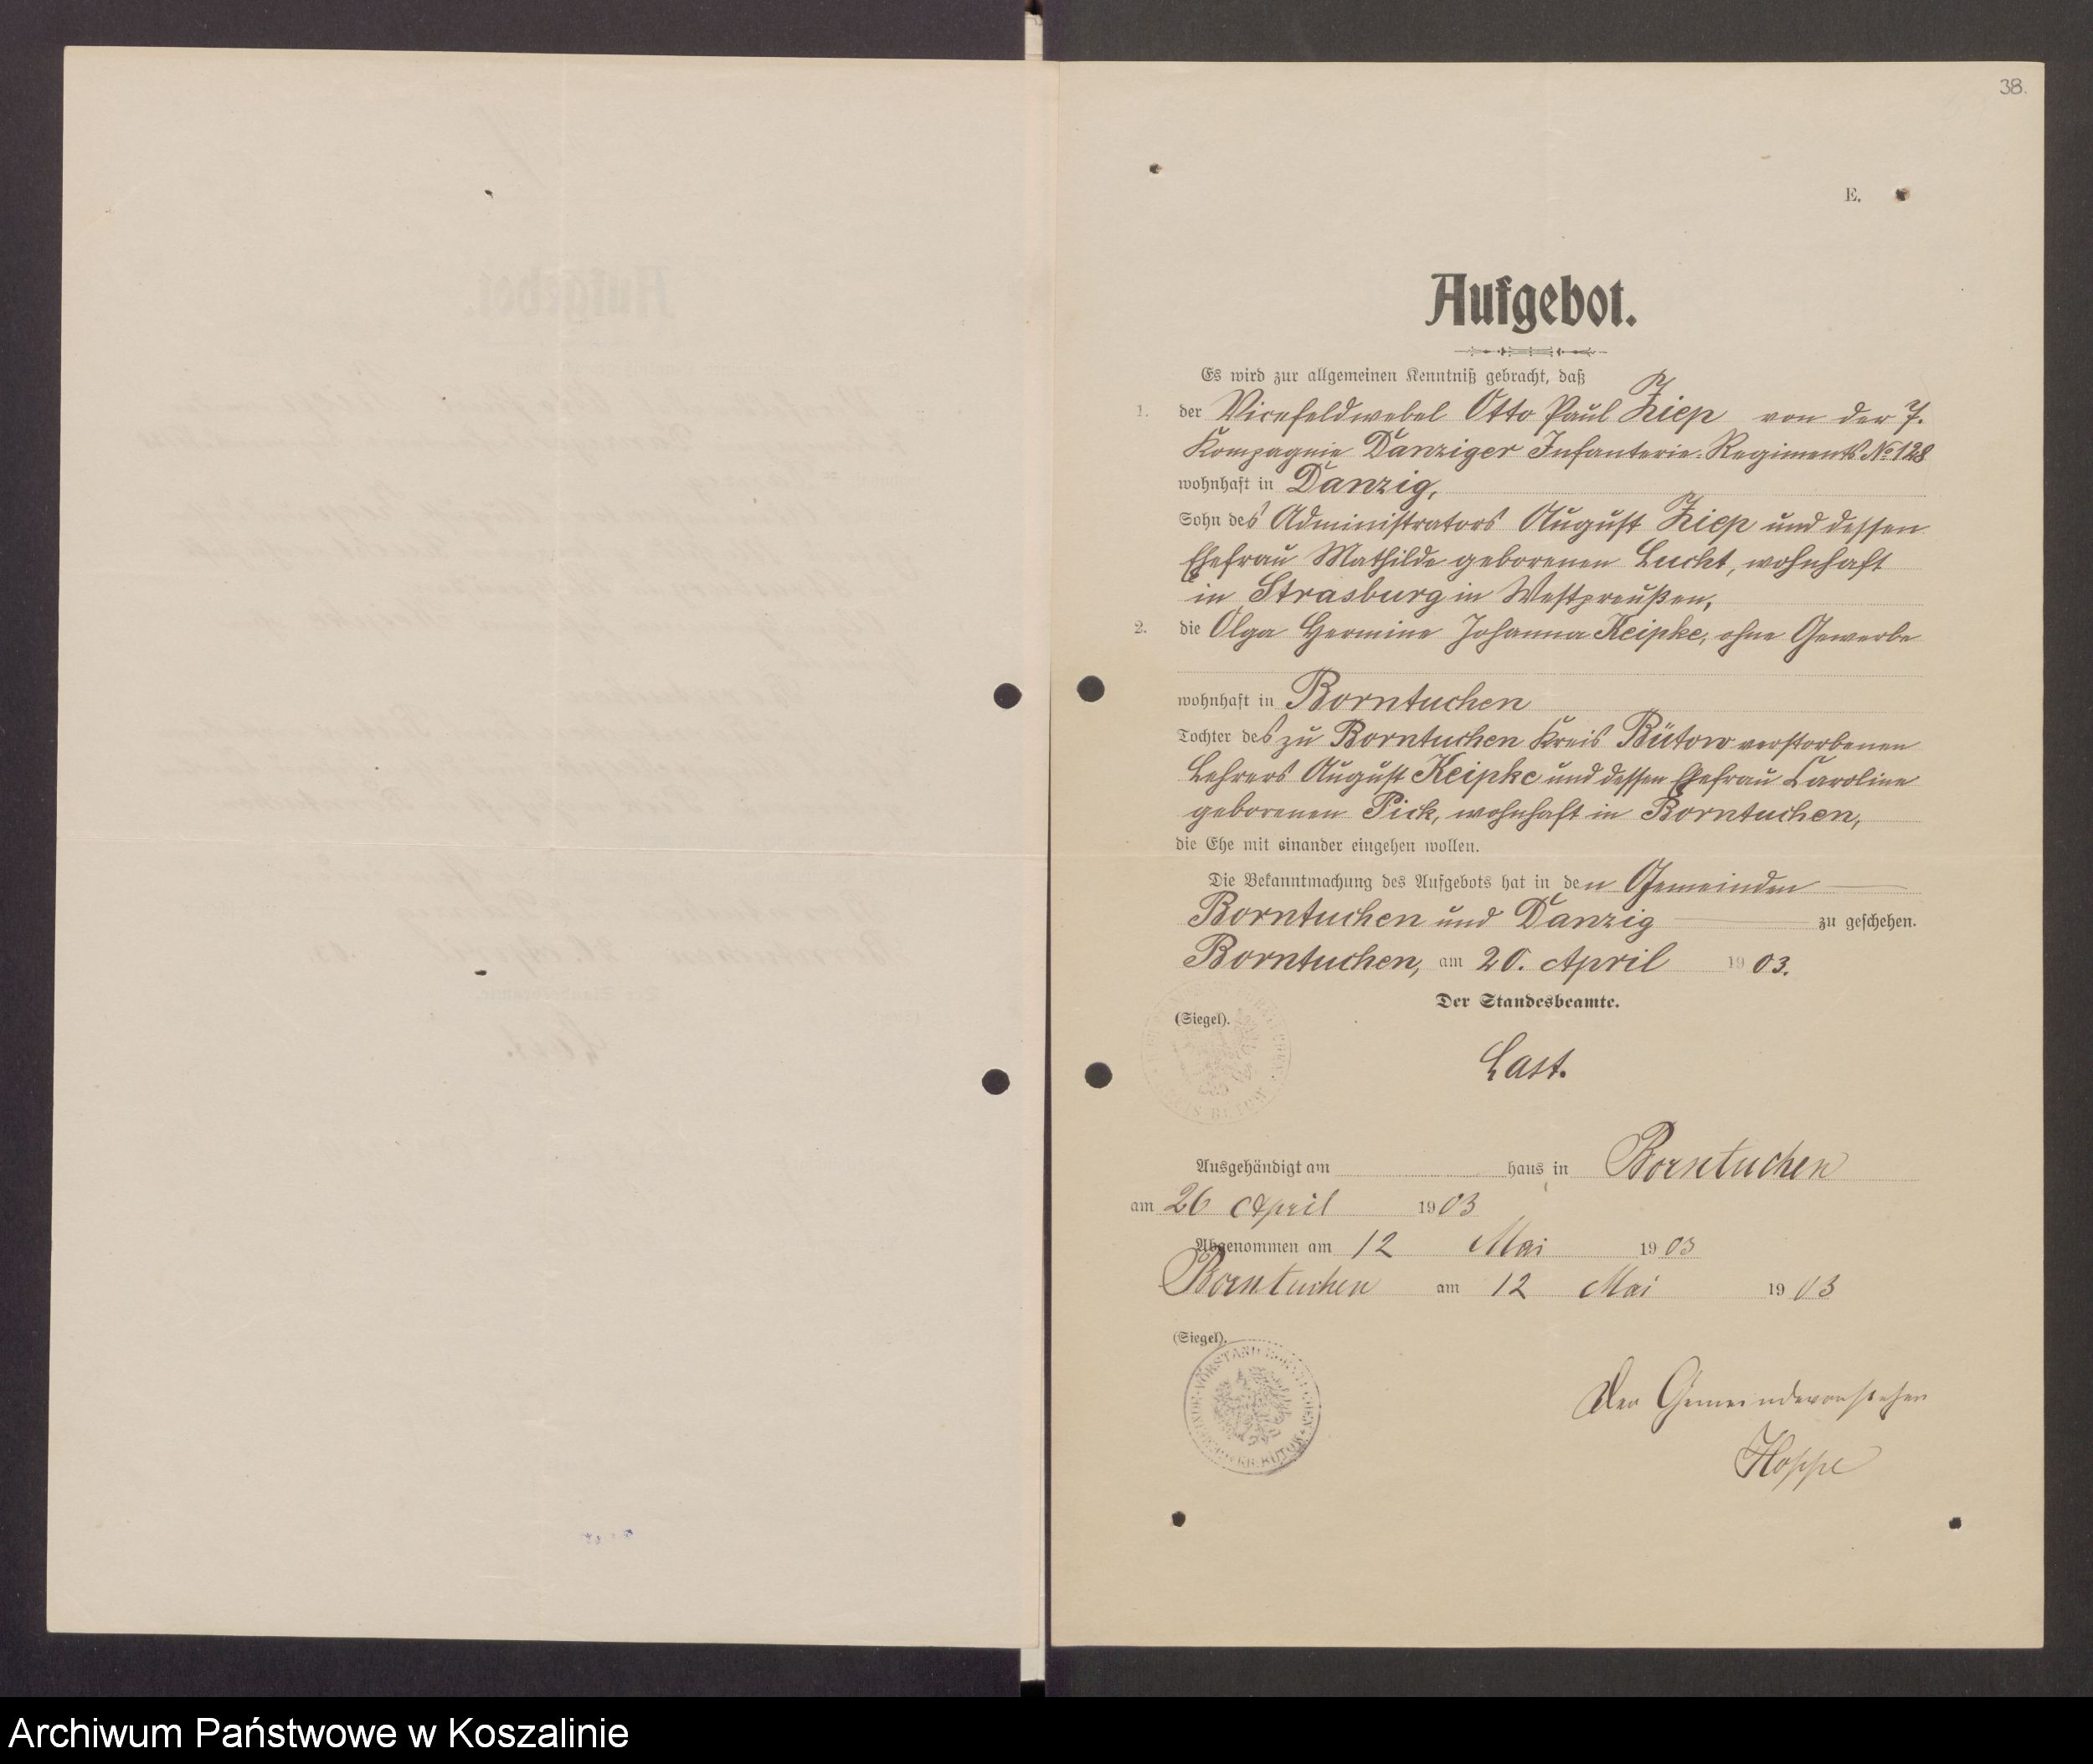 38.
E.
Aufgebot.
Es wird zur allgemeinen Kenntniß gebracht, daß
1. der Vicefeldwebel Otto Paul Ziep von der 7.
Kompagnie Danziger Infanterie-Regiments No 128
wohnhaft in Danzig,
Sohn des Administrators August Ziep und dessen
Ehefrau Mathilde geborenen Lucht, wohnhaft
in Strasburg in Westpreußen,
2. die Olga Hermine Johanna Keipke, ohne Gewerbe
wohnhaft in Borntuchen
Tochter des zu Borntuchen Kreis Bütow verstorbenen
Lehrers August Keipke und dessen Ehefrau Caroline
geborenen Pick, wohnhaft in Borntuchen,
die Ehe mit einander eingehen wollen.
Die Bekanntmachung des Aufgebots hat in den Gemeinden
Borntuchen und Danzig zu geschehen.
Borntuchen, am 20. April 1903.
Der Standesbeamte.
(Siegel).
Last.
Ausgehändigt am haus in Borntuchen
am 26 April 1903
Abgenommen am 12 Mai 1903
Borntuchen am 12 Mai 1903
(Siegel).
Der Gemeindevorsteher
Hoppe
Archiwum Państwowe w Koszalinie